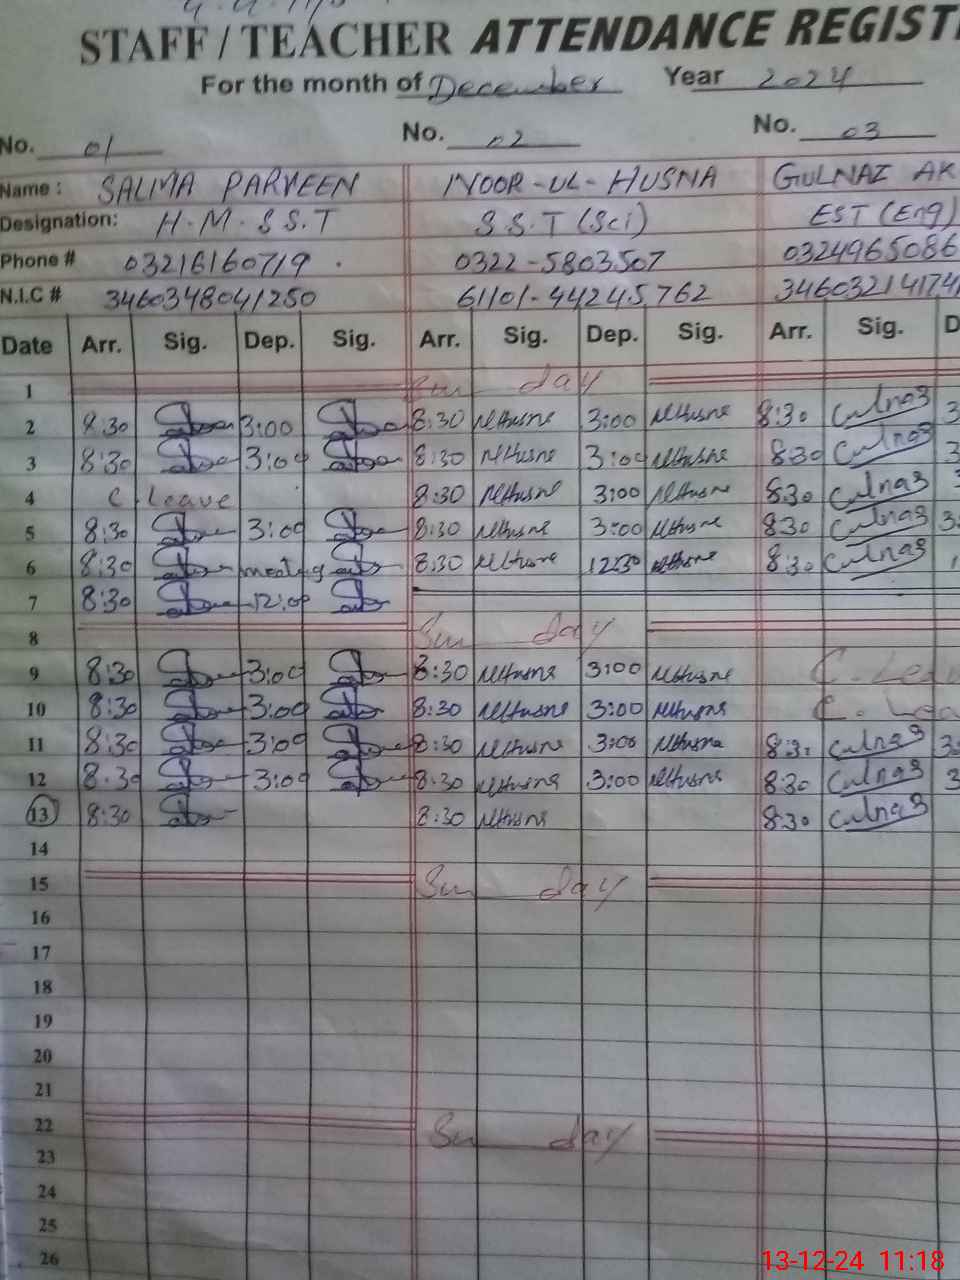 STAFF / TEACHER ATTENDANCE REGIST
For the month of December Year 2024
No. 01 No. 02 No. 03
Name : SALMA PARVEEN NOOR-UL-HUSNA GULNAZ AK
Designation: H.M.S.S.T S.S.T (Sci) EST (Eng)
Phone # 03216160719 0322-5803507 0324965086
N.I.C # 3460348041250 61101-44245762 346032141741
Date Arr. Sig. Dep. Sig. Arr. Sig. Dep. Sig. Arr. Sig. D
1 Sun day
2 8:30 3:00 8:30 NHusne 3:00 NHusne 8:30 Gulnaz 3
3 8:30 3:00 8:30 NHusne 3:00 NHusne 8:30 Gulnaz 3
4 C. Leave 8:30 NHusne 3:00 NHusne 8:30 Gulnaz 3
5 8:30 3:00 8:30 NHusne 3:00 NHusne 8:30 Gulnaz 3
6 8:30 meeting 8:30 NHusne 12:30 NHusne 8:30 Gulnaz
7 8:30 12:00
8 Sun day
9 8:30 3:00 8:30 NHusne 3:00 NHusne C. Leav
10 8:30 3:00 8:30 NHusne 3:00 NHusne C. Lea
11 8:30 3:00 8:30 NHusne 3:00 NHusne 8:3. Gulnaz 3
12 8:30 3:00 8:30 NHusne 3:00 NHusne 8:30 Gulnaz 3
13 8:30 8:30 NHusne 8:30 Gulnaz
14
15 Sun day
16
17
18
19
20
21
22 Sun day
23
24
25
26
13-12-24 11:18